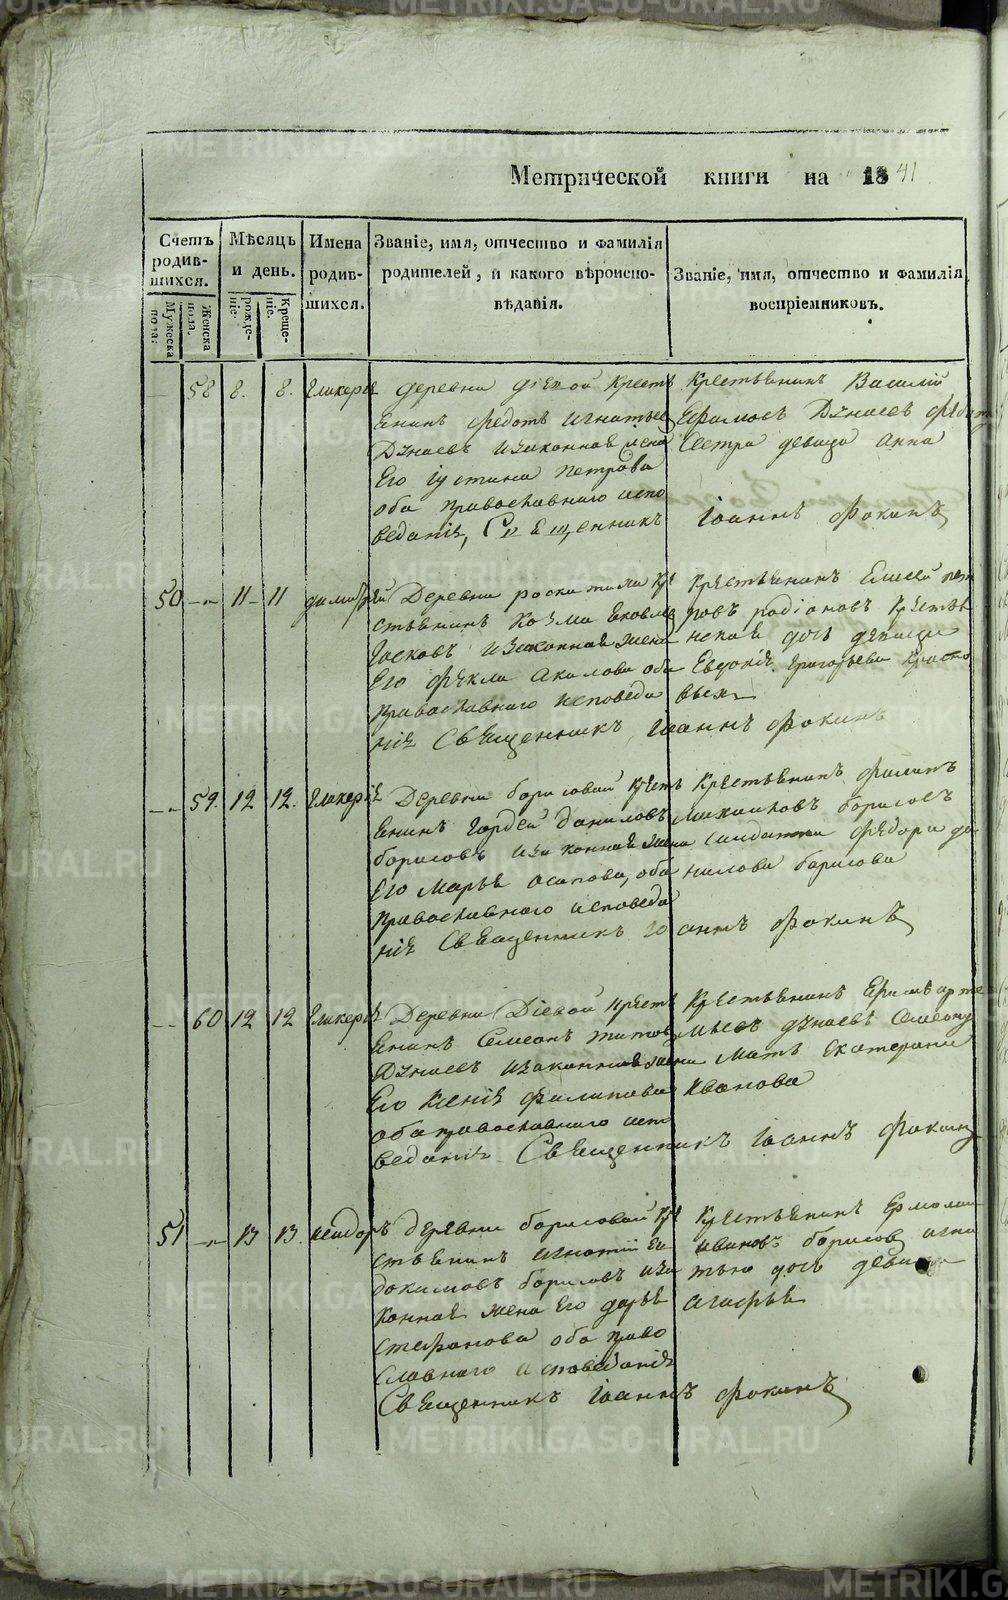 Метрической книги на 1841
Счетъ родив-шихся.
Мѣсяцъ и день.
Имена родив-шихся.
Званіе, имя, отчество и фамилія родителей, и какого вѣроиспо-вѣданія.
Званіе, имя, отчество и фамилія воспріемниковъ.
Мужеска пола.
Женска пола.
рожде-ніе.
Креще-ніе.
58 8. 8. Гликерія
деревни діевой Кресть
Енинъ федотъ игнатьев
Дунаевъ изаконная жена
Его Іустина петрова
оба православнаго испо
веданія, Священникъ Іоаннъ Фокинъ
Крестьенинъ Василій
Ефимовъ Дунаевъ
Сестра девица анна
50 11 11 димитрій
Деревни роскатиха Кре
стьенинъ Козма Яковлев
изаконная жена
Его фекла Акилова оба
православнаго исповеда
нія Священникъ Іоаннъ Фокинъ
Крестьенинъ Елисей пет
ровъ родіоновъ Крестья
нская дочь девица
Евдокія григорьева
59. 12 12. Гликерія
Деревни борисовой Кресть
Енинъ Гордей даниловъ
борисовъ изаконная жена
Его марья осипова, оба
православнаго исповеда
нія Священникъ Іоаннъ Фокинъ
Крестьенинъ филипъ
михаиловъ борисовъ
федора да
нилова борисова
60 12 12 Гликерія
Деревни Діевой Кресть
Енинъ Семеонъ титов
Дунаевъ изаконная жена
Его Ксенія филипова
оба православнаго испо
веданія Священникъ Іоаннъ Фокинъ
Крестьенинъ Ерміл арте
мьевъ дунаевъ Семеону
мать Екатерина
Иванова
51 13 13. исидоръ
деревни борисовой Кре
стьенинъ игнатій Ев
докимовъ борисовъ иза
конная жена Его дарья
стефанова оба право
славнаго исповеданія
Священникъ Іоаннъ Фокинъ
Крестьенинъ Ермолай
ивановъ борисов игна
тья дочь девица
агафья
METRIKI.GASO-URAL.RU